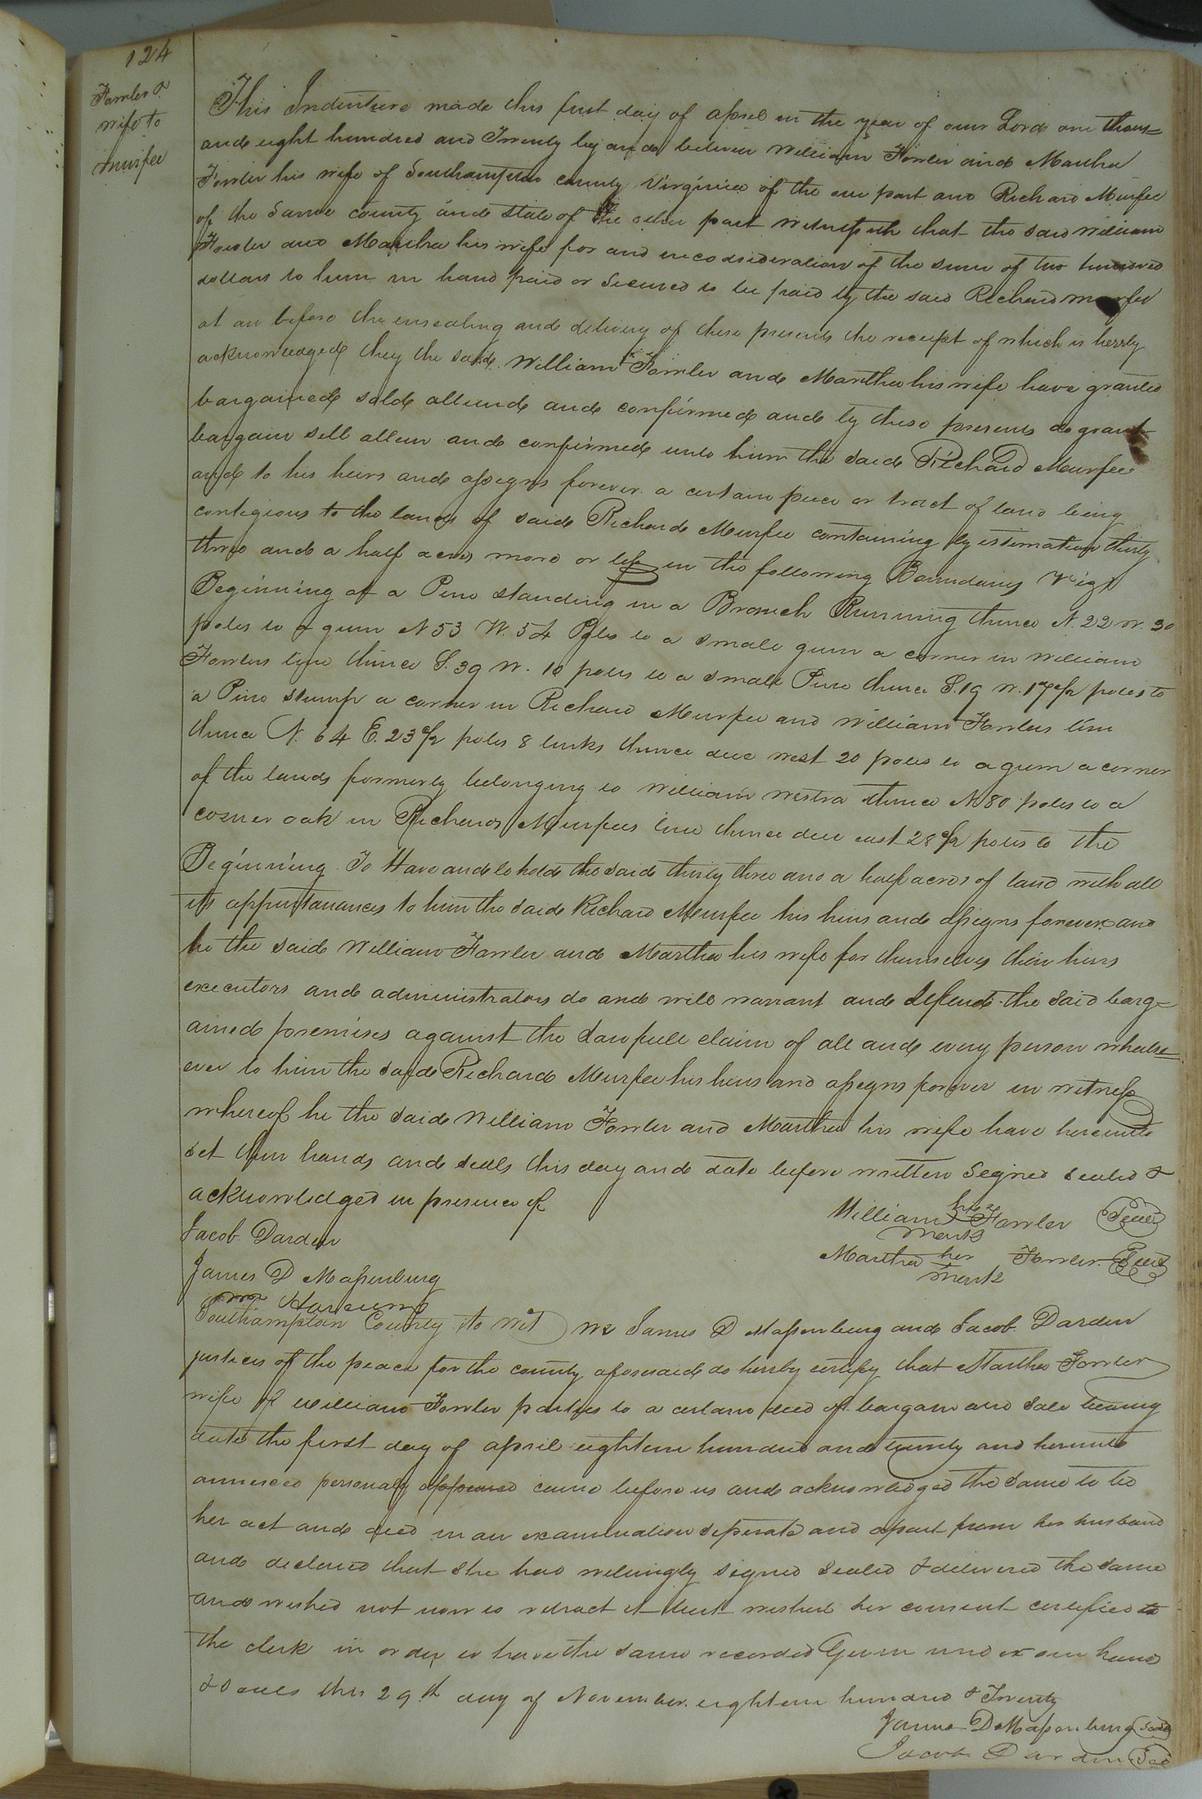 124
Fowler &
wife to
Murfee
This Indenture made this first day of april in the year of our Lord one thous=
and eight hundred and Twenty by and between William Fowler and Martha
Fowler his wife of Southampton county Virginia of the one part and Richard Murfee
of the same county and state of the other part witnesseth that the said William
Fowler and Martha his wife for and inconsideration of the sum of two hundred
dollars to him in hand paid or secured to be paid by the said Richard murfee
at an before the ensealing and delivery of these presents the receipt of which is hereby
acknowledged they the said William Fowler and Martha his wife have granted
bargained sold aliend and confirmed and by these presents do grant
bargain sell alien and confirmed unto him the said Richard Murfee
and to his heirs and assigns forever a certain piece or tract of land being
contigious to the lands of said Richard Murfee containing by estimation thirty
three and a half acres more or less in the following Boundaries Vigt
Beginning at a Pine standing in a Branch Running thence N. 22 W. 30
poles to a gum N 53 W. 54 Poles to a small gum a corner in William
Fowlers line thence S. 39 W. 10 poles to a small Pine thence S. 19 W. 17 1/2 poles to
a Pine stump a corner in Richard Murfee and William Fowlers line
thence N. 64 E. 23 1/2 poles 8 links thence due west 20 poles to a gum a corner
of the lands formerly belonging to William Westra thence N 80 poles to a
corner oak in Richard Murfees line thence due east 28 1/2 poles to the
Beginning To Have and to hold the said thirty three and a half acres of land with all
its appurtanances to him the said Richard Murfee his heirs and assigns forever and
he the said William Fowler and Martha his wife for themselves their heirs
executors and administrators do and will warrant and defend the said barg=
ained premises against the Lawfull claim of all and every person whatso=
ever to him the said Richard Murfee his heirs and assigns forever in witness
whereof he the said William Fowler and Martha his wife have hereunto
set their hands and seals this day and date before written Signed sealed &
acknowledged in presence of
William his Fowler Seal
mark
Jacob Darden
Martha her Fowler Seal
mark
James D Massenburg
Southampton County to wit) We James D Massenburg and Jacob Darden
justices of the peace for the county aforesaid do hereby certify that Martha Fowler
wife of William Fowler parties to a certain deed of bargain and sale bearing
date the first day of april eighteen hundred and twenty and hereunto
annexed personally appeared came before us and acknowledged the same to be
her act and deed in an examination seperate and apart from her husband
and declared that she had willingly signed sealed & delivered the same
and wished not now to retract it but wished her consent certified to
the clerk in order to have the same recorded Given under our hands
& seals this 29th day of November eighteen hundred & Twenty
James D Massenburg Seal
Jacob Darden Seal